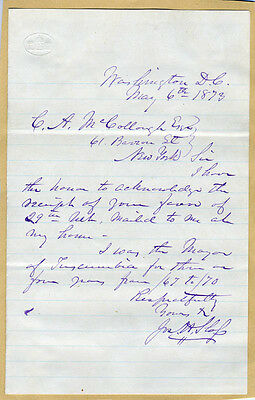 Washington D.C.
May 6th 1873
C. A. McCollough Esq
61. Beaver St
New York Sir
I have
the honor to acknowledge the
receipt of your favor of
29th Ult. Mailed to me at
my home -
I was the Mayor
of Tuscumbia for three or
four years from '67 to '70
Respectfully
Yours &
Jos.